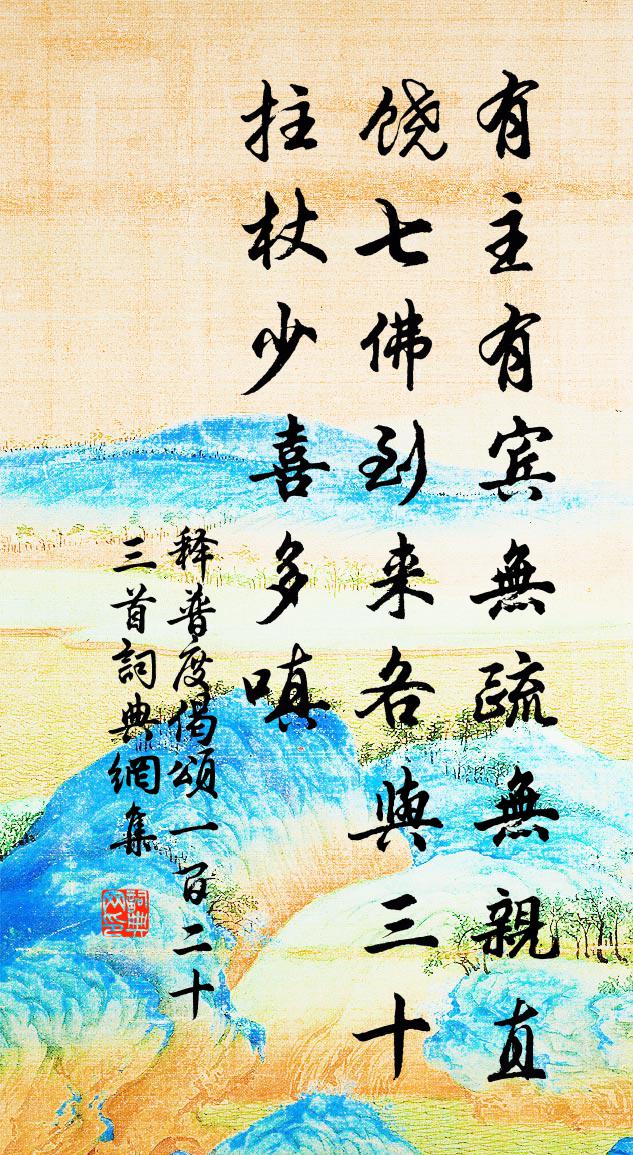 有主有宾無疏無親直
饶七佛到来各與三十
拄杖少喜多嗔
释普度偈頌一百二十
三首詞典網集